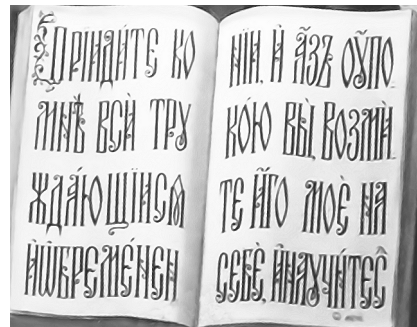 Прїиди́те ко
мнѣ̀ всѝ тру
жда́ющїисѧ
и҆ ѡ҆бремене́н
нїи, и҆ а҆́зъ ᲂу҆поко́ю
вы̀, возми̑
те и҆́го моѐ на
себѐ, и҆ наꙋчи́тесѧ